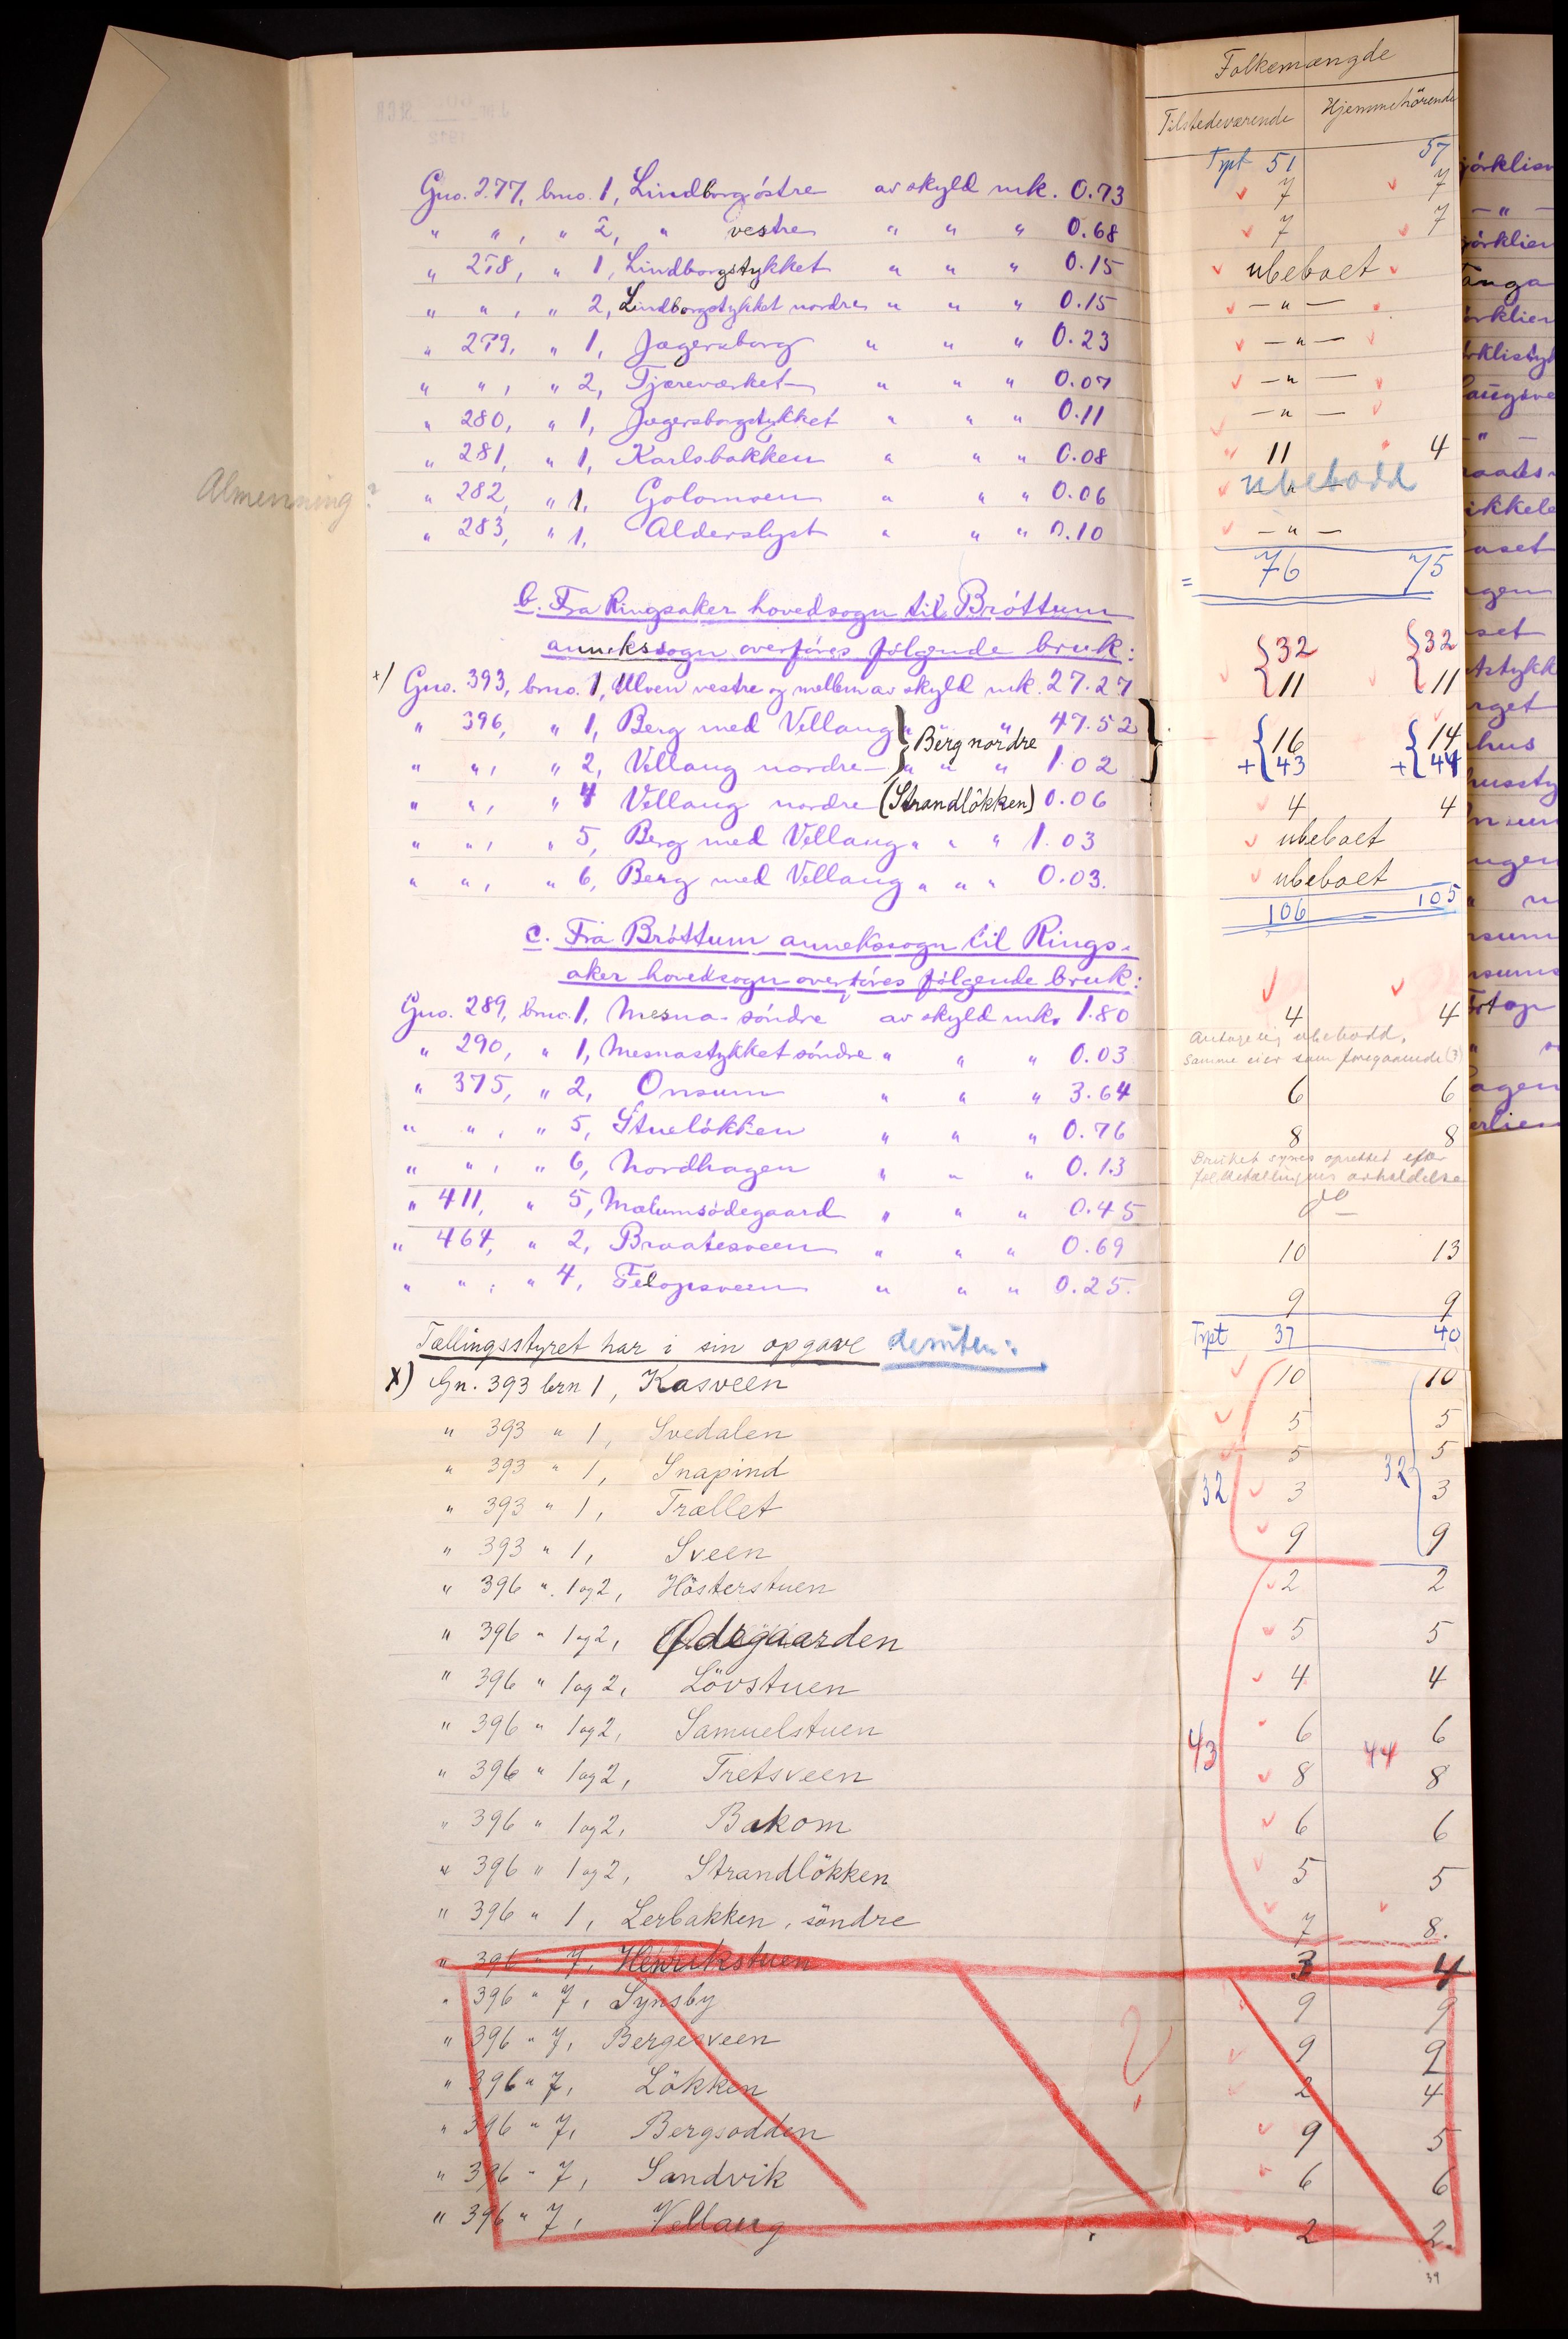 Folkemængde
Tilstedeværende Hjemmehörende
Trpt 51 57
Gno. 277, bno. 1, Lindborg östre av skyld mk. 0.73 7 7
" ", " 2, " vestre " " " 0.68 7 7
" 278, " 1, Lindborgstykket " " " 0.15 ubeboet
" ", " 2, Lindborgstykket nordre " " " 0.15 — " —
" 279, " 1, Jægersborg " " " 0.23 — " —
" ", " 2, Tjæreværket " " " 0.07 — " —
" 280, " 1, Jægersborgstykket " " " 0.11 — " —
" 281, " 1, Karlsbakken " " " 0.08 11 4
Almenning? " 282, " 1, Golomoen " " " 0.06 ubebodd
" 283, " 1, Alderslyst " " " 0.10 — " —
= 76 75
b. Fra Ringsaker hovedsogn til Bröttum
annekssogn overföres fölgende bruk:
+) Gno. 393, bno. 1, Ulven vestre og mellem av skyld mk. 27.27 {32 11 {32 11
" 396, " 1, Berg med Vellaug " " 47.52 } {16 {14
} Berg nordre
" ", " 2, Vellaug nordre — " " " 1.02 +{43 +{44
" ", " 4 Vellaug nordre (Strandlökken) 0.06 4 4
" ", " 5, Berg med Vellaug " " " 1.03 ubeboet
" ", " 6, Berg med Vellaug " " " 0.03. ubeboet
106 105
c. Fra Bröttum annekssogn til Rings-
aker hovedsogn overföres fölgende bruk:
Gno. 289, bno. 1, Mesna söndre av skyld mk. 1.80 4 4
" 290, " 1, Mesnastykket söndre " " " 0.03 Antagelig ubebodd.
Samme eier som foregaaende (?)
" 375, " 2, Onsum " " " 3.64 6 6
" ", " 5, Stuelökken " " " 0.76 8 8
" ", " 6, Nordhagen " " " 0.13 Bruket synes oprettet efter
folketællingens avholdelse
" 411, " 5, Mælumsödegaard " " " 0.45 do
" 464, " 2, Braatesveen " " " 0.69 10 13
" ", " 4, Fælopsveen " " " 0.25. 9 9
Trpt 37 40
Tællingsstyret har i sin opgave desuten:
x) Gn. 393 brn 1, Kasveen 10 10
" 393 " 1, Svedalen 5 5
" 393 " 1, Snapind 5 5
" 393 " 1, Trællet 32 3 32 3
" 393 " 1, Sveen 9 9
" 396 " 1 og 2, Hösterstuen 2 2
" 396 " 1 og 2, Ödegaarden 5 5
" 396 " 1 og 2, Lövstuen 4 4
" 396 " 1 og 2, Samuelstuen 6 6
" 396 " 1 og 2, Tretsveen 43 8 44 8
" 396 " 1 og 2, Bakom 6 6
" 396 " 1 og 2, Strandlökken 5 5
" 396 " 1, Lerbakken, söndre 7 8.
" 396 " 7, Henrikstuen 3 4
" 396 " 7, Synsby 9 9
" 396 " 7, Bergesveen 9 9
" 396 " 7, Lökken 2 4
" 396 " 7, Bergsodden 9 5
" 396 " 7, Sandvik 6 6
" 396 " 7, Vellaug 2 2.
?
39